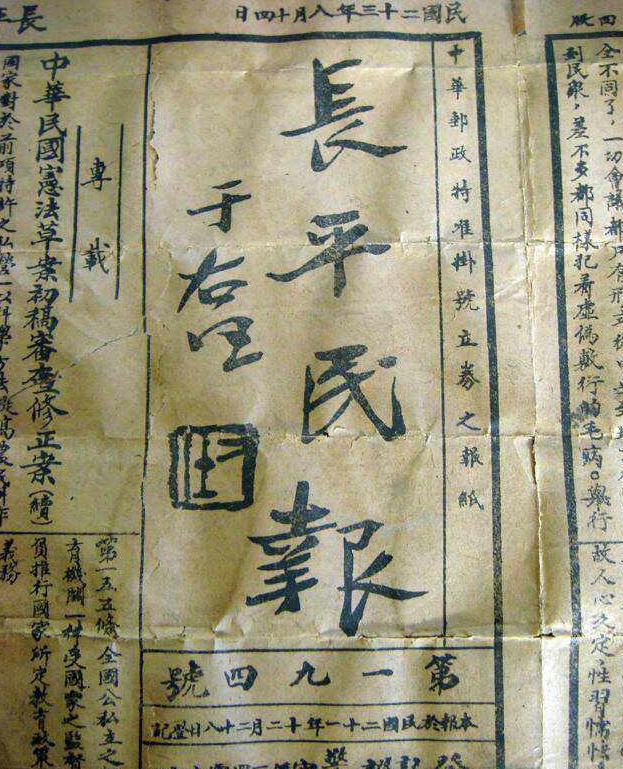 民國二十三年八月十四日
全不同了，一切會議都只有形式
到民衆，差不多都同樣犯着虛偽敷行的毛病。舉行
故人心久定，性習懦怯
中華郵政特准掛號立券之報紙
長平民報
于右任
第一九四號
本報於民國二十一年十二月二十八日登記
專載
中華民國憲法草案初稿審查修正案（續）
國家對於前項特許之私營
第一五五條全國公私立之
育機關一律受國家之監督
負推行國家所定教育政策
義務